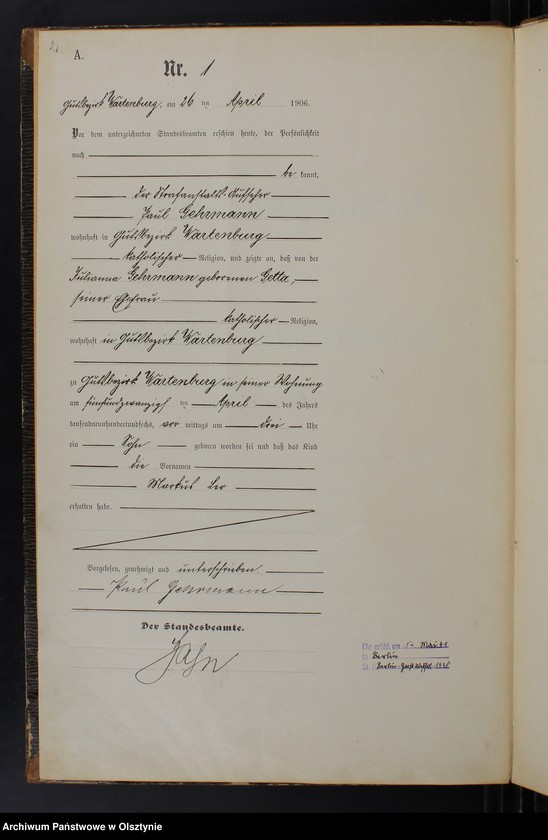 A.
Nr. 1
Gutsbezirk Wartenburg, am 26 ten April 1906.
Vor dem unterzeichneten Standesbeamten erschien heute, der Persönlichkeit
nach
be kannt,
der Strafanstalts-Aufseher
Paul Gehrmann
wohnhaft in Gutsbezirk Wartenburg
katholischer Religion, und zeigte an, daß von der
Julianna Gehrmann geborenen
seiner Ehefrau
katholischer Religion,
wohnhaft in Gutsbezirk Wartenburg
zu Gutsbezirk Wartenburg in seiner Wohnung
am fünfundzwanzigsten April des Jahres
tausendneunhundertundsechs, vor mittags um drei Uhr
ein Sohn geboren worden sei und daß das Kind
die Vornamen
Markus Leo
erhalten habe.
Vorgelesen, genehmigt und unterschrieben
Paul Gehrmann
Der Standesbeamte.
Hahn
Berlin
Archiwum Państwowe w Olsztynie